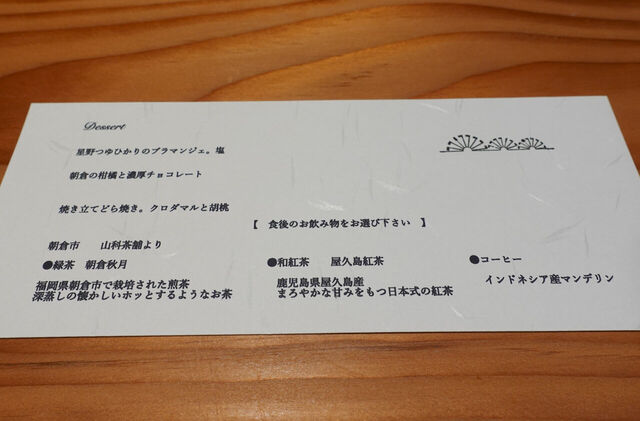 Dessert
星野つゆひかりのブラマンジェ。塩
朝倉の柑橘と濃厚チョコレート
焼き立てどら焼き。クロダマルと胡桃
【 食後のお飲み物をお選び下さい 】
朝倉市 山科茶舗より
●緑茶 朝倉秋月
福岡県朝倉市で栽培された煎茶
深蒸しの懐かしいホッとするようなお茶
●和紅茶 屋久島紅茶
鹿児島県屋久島産
まろやかな甘みをもつ日本式の紅茶
●コーヒー
インドネシア産マンデリン